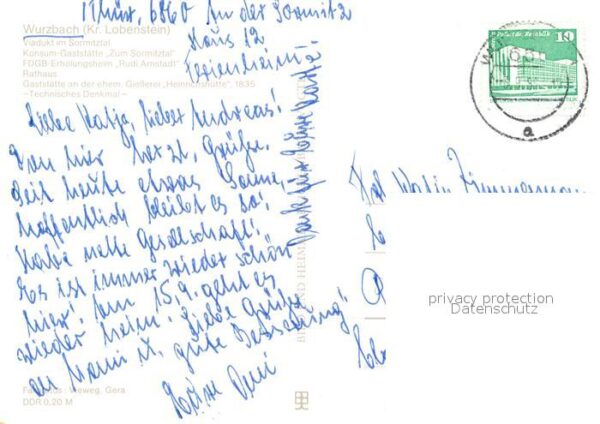 Thür, 6860 An der Sormitz
Haus 12
Ferienheim
Wurzbach (Kr. Lobenstein)
Viadukt im Sormitztal
Konsum-Gaststätte „Zum Sormitztal"
FDGB-Erholungsheim „Rudi Arnstadt"
Rathaus
Gaststätte an der ehem. Gießerei „Heinrichshütte", 1835
–Technisches Denkmal–
Liebe Katja, lieber Andreas!
Von hier herzl. Grüße.
Seit heute etwas Sonne,
hoffentlich bleibt es so!
Habe nette Gesellschaft!
Es ist immer wieder schön
hier! Am 15.9. geht es
wieder heim. Liebe Grüße
an Mami u. gute Besserung!
Eure
Dank für
BILD UND HEIM
Weweg, Gera
DDR 0,20 M
10
Palast der Republik
a
privacy protection
Datenschutz